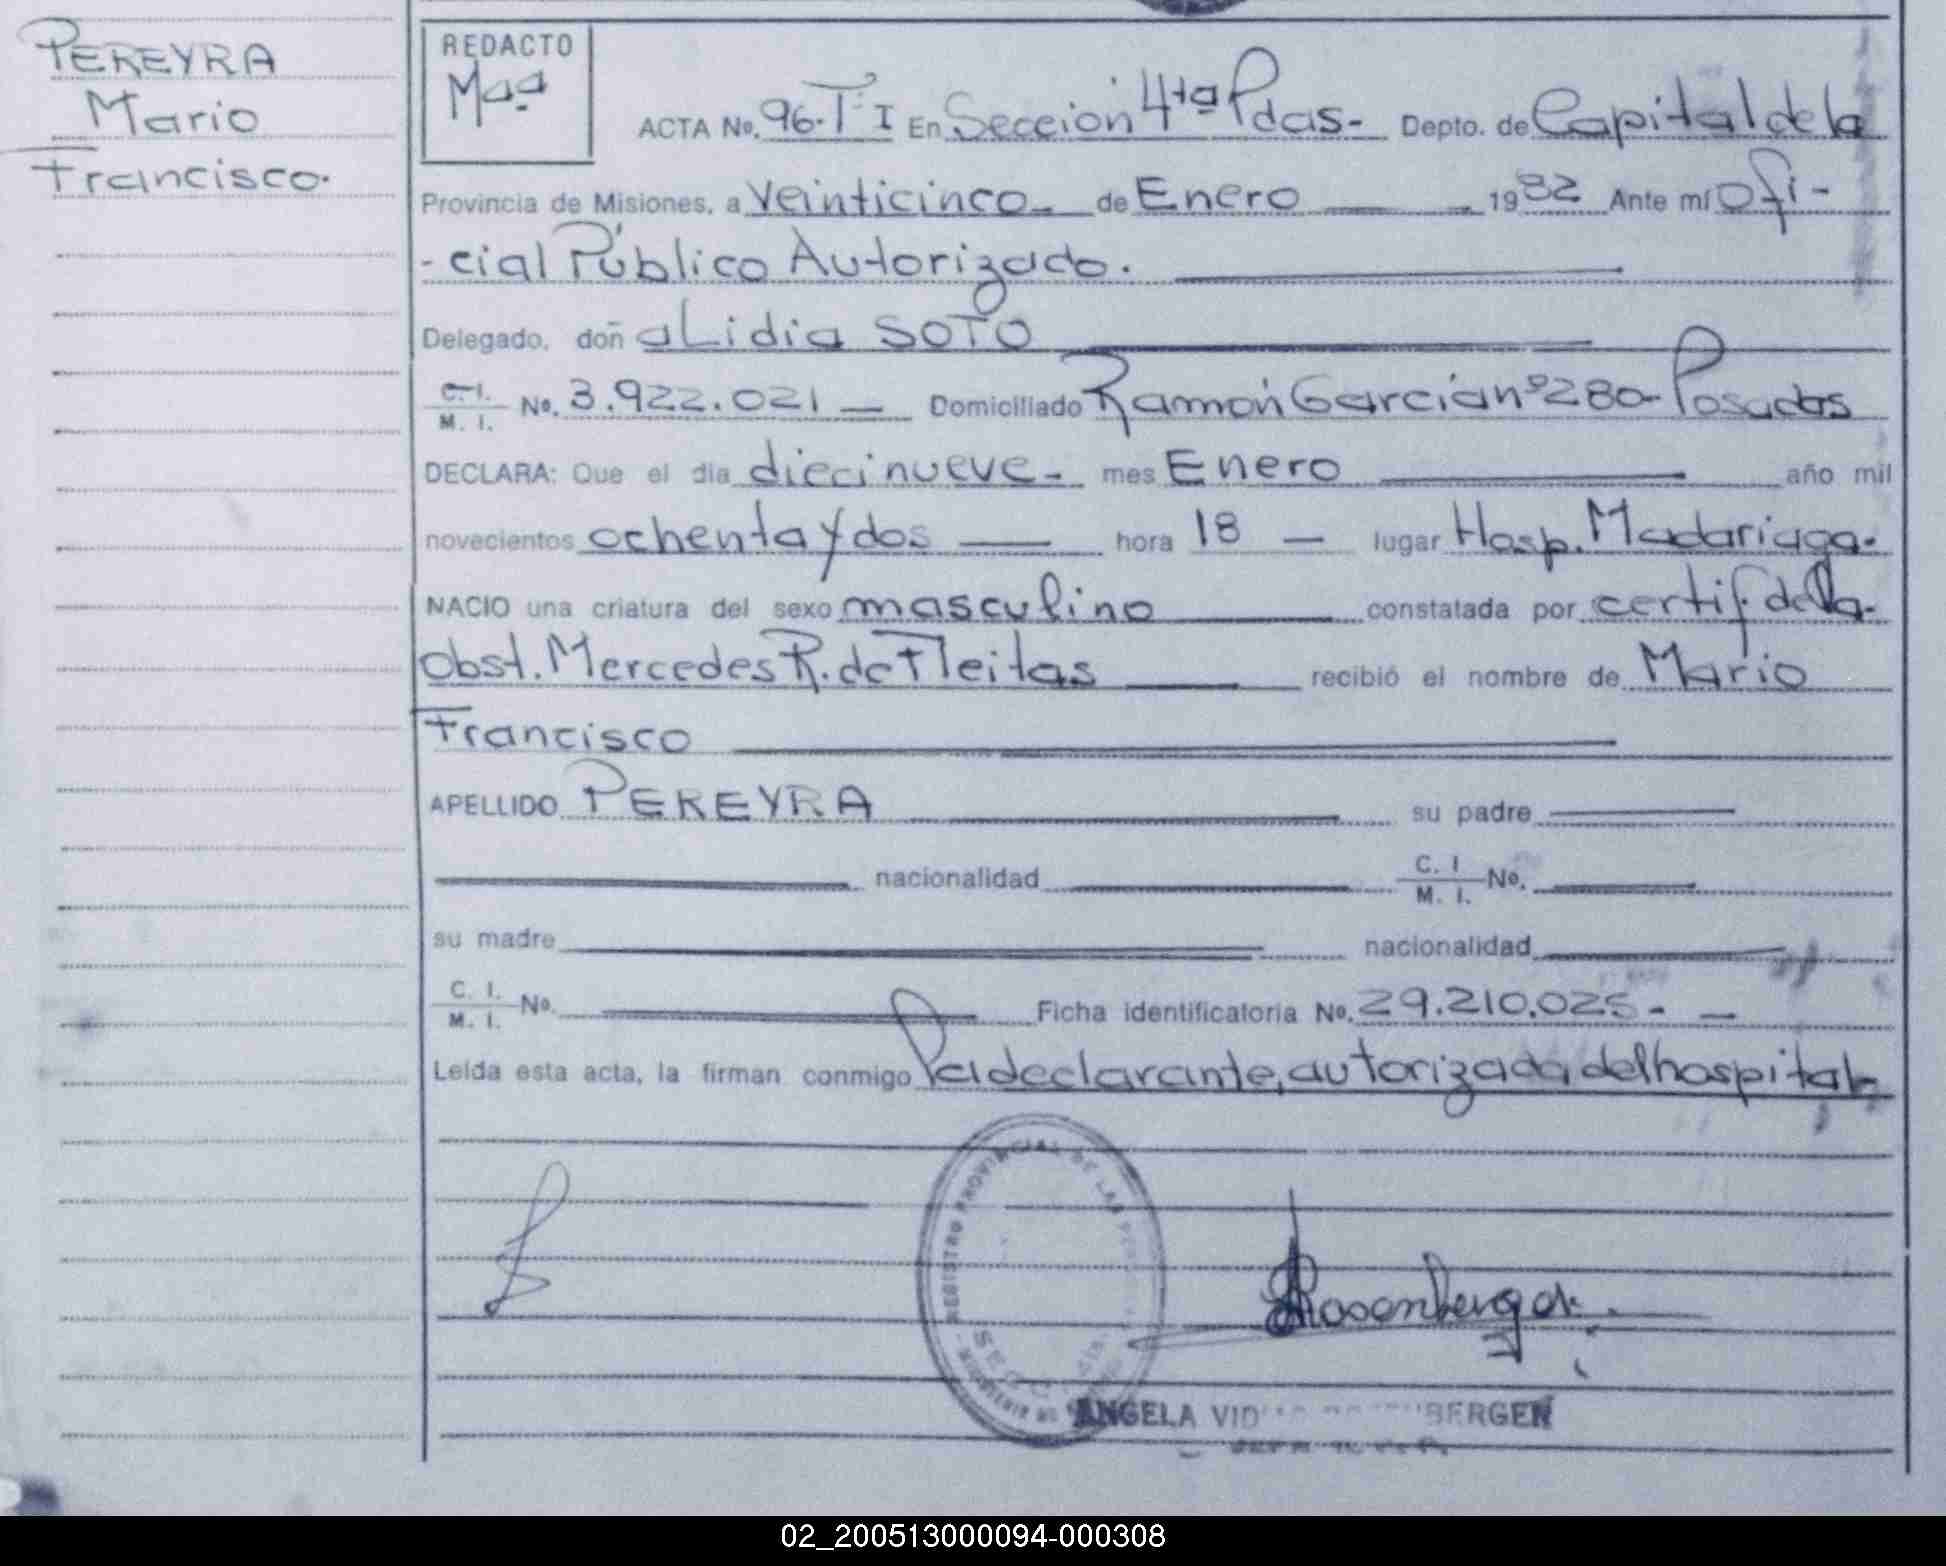 PEREYRA
Mario
Francisco.
REDACTO
ACTA No. 96-Tº I En Sección 4ta Pdas- Depto. de Capital de la
Provincia de Misiones, a veinticinco- de Enero 1982 Ante mí Ofi-
-cial Público Autorizado.
Delegado, doñ a Lidia SOTO
C. I. / M. I. No. 3.922.021 — Domiciliado Ramón García nº 280- Posadas
DECLARA: Que el dia diecinueve- mes Enero año mil
novecientos ochenta y dos — hora 18 — lugar Hosp. Madariaga-
NACIO una criatura del sexo masculino constatada por certif. de la
Obst. Mercedes R. de Fleitas recibió el nombre de Mario
Francisco
APELLIDO PEREYRA su padre
nacionalidad C. I / M. I. No.
su madre nacionalidad
C. I. / M. I. No. Ficha identificatoria No. 29.210.025- —
Leída esta acta, la firman conmigo la declarante, autorizada del hospital-
REGISTRO PROVINCIAL DE LAS
ANGELA BERGEN
02_200513000094-000308